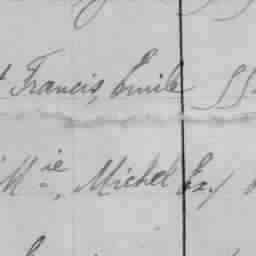 Francis, Emile
Mie, Michel Ex.